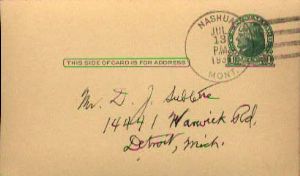 NASHUA
JUL
13
P.M.
MONT.
THIS SIDE OF CARD IS FOR ADDRESS
Mr. D. J. Sublette
14491 Warwick Rd.
Detroit, Mich.